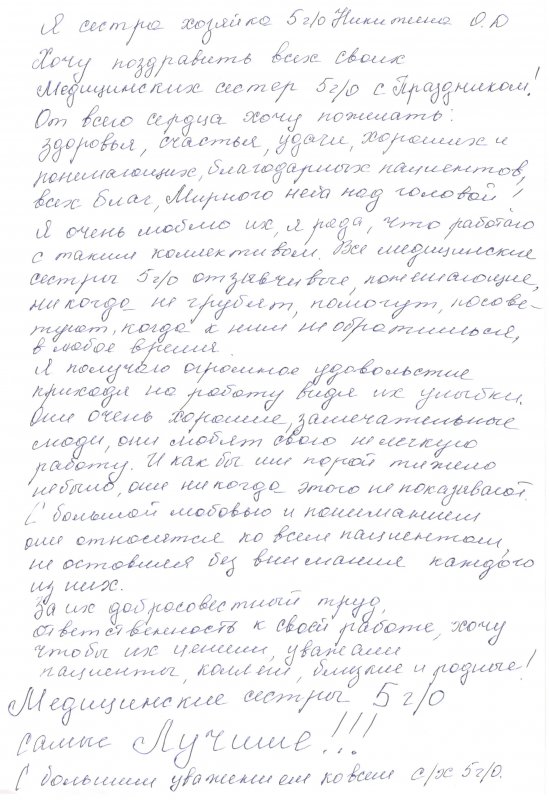 Я сестра хозяйка 5 г/о Никитина О.Ю
Хочу поздравить всех своих
Медицинских сестер 5 г/о с Праздником!
От всего сердца хочу пожелать:
здоровья, счастья, удачи, хороших и
понимающих, благодарных пациентов,
всех благ, Мирного неба над головой!
Я очень люблю их, я рада, что работаю
с таким коллективом. Все медицинские
сестры 5 г/о отзывчивые, понимающие,
никогда не грубят, помогут, посове-
туют, когда к ним не обратишься,
в любое время.
Я получаю огромное удовольствие
приходя на работу видя их улыбки.
Они очень хорошие, замечательные
люди, они любят свою нелегкую
работу. И как бы им порой тяжело
небыло, они никогда этого не показывают.
С большой любовью и пониманием
они относятся ко всем пациентам,
не оставляя без внимания каждого
из них.
За их добросовестный труд,
ответственность к своей работе, хочу
чтобы их ценили, уважали
пациенты, коллеги, близкие и родные!
Медицинские сестры 5 г/о
самые Лучшие!!!
С большим уважением ко всем с/х 5 г/о.